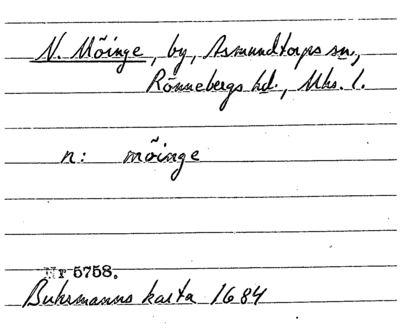 N. Mõinge, by, Asmundtorps sn,
Rönnebergs hd., Mhs. l.
n: mõinge
Nr 5758.
Buhrmanns karta 1684